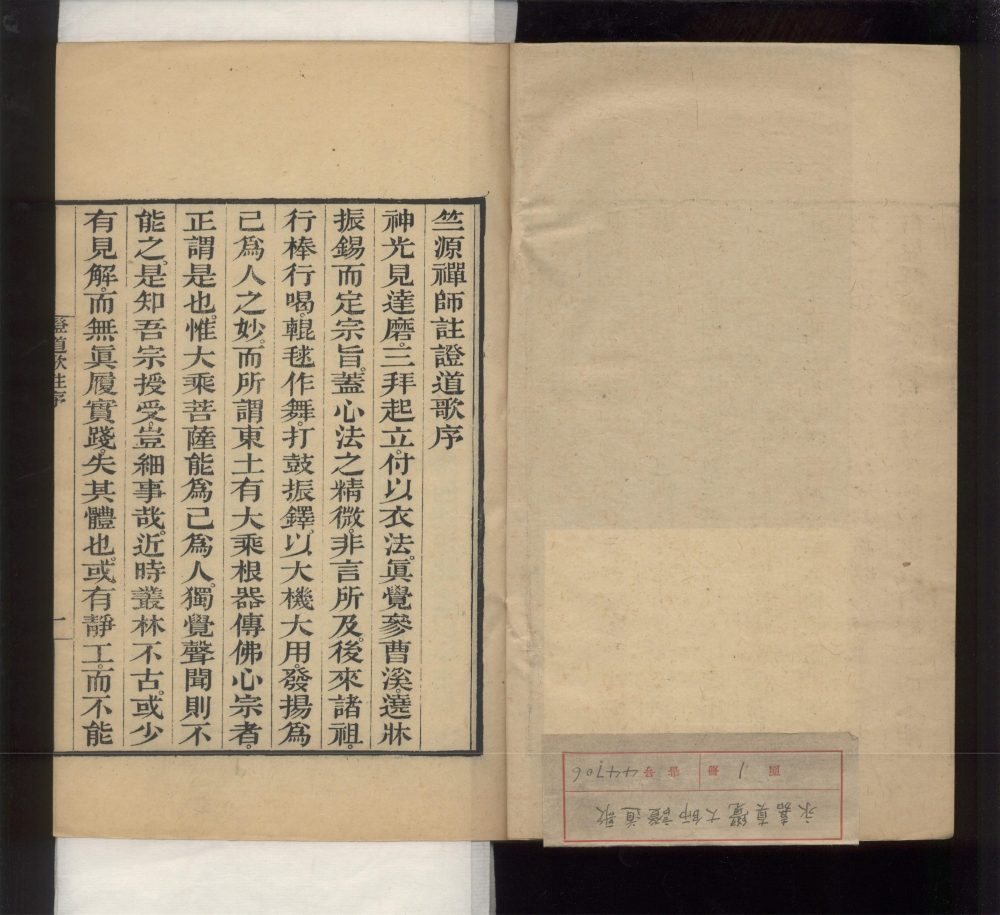 竺源禪師註證道歌序
神光見達磨。三拜起立。付以衣法。眞覺參曹溪。遶牀
振錫而定宗旨。蓋心法之精微。非言所及。後來諸祖。
行棒行喝。輥毬作舞。打鼓振鐸。以大機大用。發揚爲
己爲人之妙。而所謂東土有大乘根器傳佛心宗者。
正謂是也。惟大乘菩薩能爲己爲人。獨覺聲聞則不
能之。是知吾宗授受。豈細事哉。近時叢林不古。或少
有見解。而無眞履實踐。失其體也。或有靜工。而不能
證道歌註序
一
永嘉真覺大師證道歌
書号 44706
冊 1